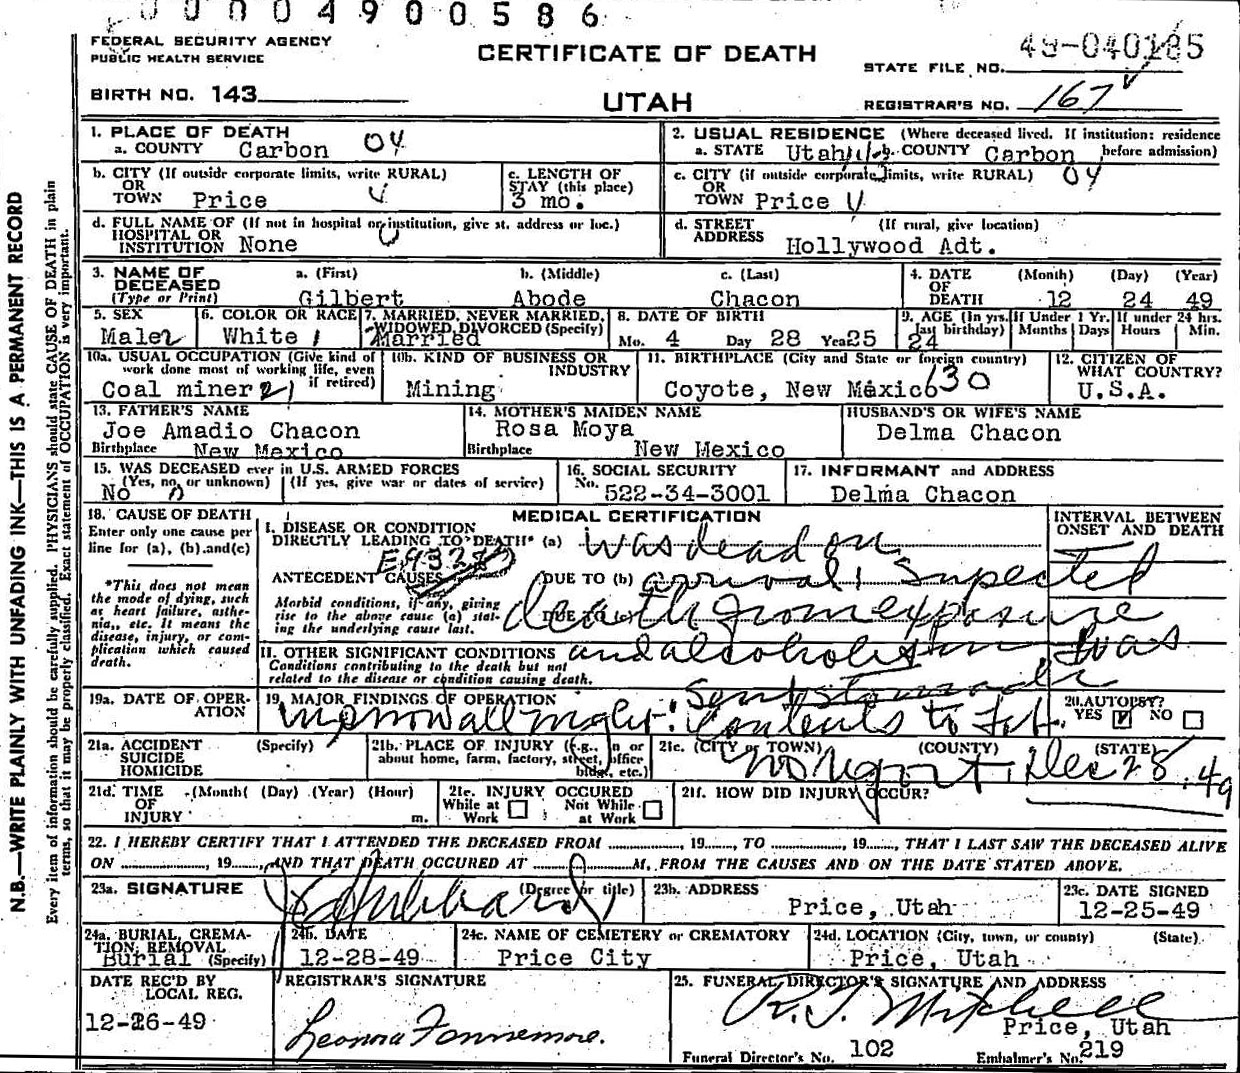 0004900586
FEDERAL SECURITY AGENCY
PUBLIC HEALTH SERVICE
CERTIFICATE OF DEATH
STATE FILE NO. 49-040185
BIRTH NO. 143
UTAH
REGISTRAR'S NO. 167
N.B.—WRITE PLAINLY WITH UNFADING INK—THIS IS A PERMANENT RECORD
Every item of information should be carefully supplied. PHYSICIANS should state CAUSE OF DEATH in plain
terms, so that it may be properly classified. Exact statement of OCCUPATION is very important.
1. PLACE OF DEATH
a. COUNTY Carbon 04
2. USUAL RESIDENCE (Where deceased lived. If institution: residence
a. STATE Utah b. COUNTY Carbon before admission)
b. CITY (If outside corporate limits, write RURAL)
OR
TOWN Price
c. LENGTH OF
STAY (this place)
3 mo.
c. CITY (if outside corporate limits, write RURAL) 04
OR
TOWN Price
d. FULL NAME OF (If not in hospital or institution, give st. address or loc.)
HOSPITAL OR
INSTITUTION None
d. STREET (If rural, give location)
ADDRESS Hollywood Adt.
3. NAME OF
DECEASED
(Type or Print)
a. (First) b. (Middle) c. (Last)
Gilbert Abode Chacon
4. DATE (Month) (Day) (Year)
OF
DEATH 12 24 49
5. SEX
Male 2
6. COLOR OR RACE
White 1
7. MARRIED, NEVER MARRIED,
WIDOWED, DIVORCED (Specify)
Married
8. DATE OF BIRTH
Mo. 4 Day 28 Year 25
9. AGE (In yrs. last birthday) If Under 1 Yr. If under 24 hrs.
24 Months Days Hours Min.
10a. USUAL OCCUPATION (Give kind of
work done most of working life, even
if retired)
Coal miner 21
10b. KIND OF BUSINESS OR
INDUSTRY
Mining
11. BIRTHPLACE (City and State or foreign country)
Coyote, New Mexico 130
12. CITIZEN OF
WHAT COUNTRY?
U.S.A.
13. FATHER'S NAME
Joe Amadio Chacon
Birthplace New Mexico
14. MOTHER'S MAIDEN NAME
Rosa Moya
Birthplace New Mexico
HUSBAND'S OR WIFE'S NAME
Delma Chacon
15. WAS DECEASED ever in U.S. ARMED FORCES
(Yes, no, or unknown) (If yes, give war or dates of service)
No 0
16. SOCIAL SECURITY
No. 522-34-3001
17. INFORMANT and ADDRESS
Delma Chacon
18. CAUSE OF DEATH
Enter only one cause per
line for (a), (b) and (c)
*This does not mean
the mode of dying, such
as heart failure, asthe-
nia, etc. It means the
disease, injury, or com-
plication which caused
death.
MEDICAL CERTIFICATION
INTERVAL BETWEEN
ONSET AND DEATH
I. DISEASE OR CONDITION
DIRECTLY LEADING TO DEATH* (a) was dead on
ANTECEDENT CAUSES
DUE TO (b) arrival; suspected
Morbid conditions, if any, giving
rise to the above cause (a) stat-
ing the underlying cause last.
DUE TO (c) death from exposure
II. OTHER SIGNIFICANT CONDITIONS and alcoholism. Was
Conditions contributing to the death but not
related to the disease or condition causing death.
19a. DATE OF OPER-
ATION
19. MAJOR FINDINGS OF OPERATION
in snow all night. Sent stomach
contents to
20. AUTOPSY?
YES NO
21a. ACCIDENT (Specify)
SUICIDE
HOMICIDE
21b. PLACE OF INJURY (e.g., in or
about home, farm, factory, street, office
bldg., etc.)
21c. (CITY or TOWN) (COUNTY) (STATE)
No report, Dec 28, 49
21d. TIME (Month) (Day) (Year) (Hour)
OF
INJURY m.
21e. INJURY OCCURED
While at Work Not While at Work
21f. HOW DID INJURY OCCUR?
22. I HEREBY CERTIFY THAT I ATTENDED THE DECEASED FROM , 19 , TO , 19 , THAT I LAST SAW THE DECEASED ALIVE
ON , 19 , AND THAT DEATH OCCURED AT M, FROM THE CAUSES AND ON THE DATE STATED ABOVE.
23a. SIGNATURE (Degree or title)
Hubbard
23b. ADDRESS
Price, Utah
23c. DATE SIGNED
12-25-49
24a. BURIAL, CREMA-
TION, REMOVAL
Burial (Specify)
24b. DATE
12-28-49
24c. NAME OF CEMETERY or CREMATORY
Price City
24d. LOCATION (City, town, or county) (State)
Price, Utah
DATE REC'D BY
LOCAL REG.
12-26-49
REGISTRAR'S SIGNATURE
Leonora Fonnemore.
25. FUNERAL DIRECTOR'S SIGNATURE AND ADDRESS
R. J. Mitchell
Price, Utah
Funeral Director's No. 102 Embalmer's No. 219